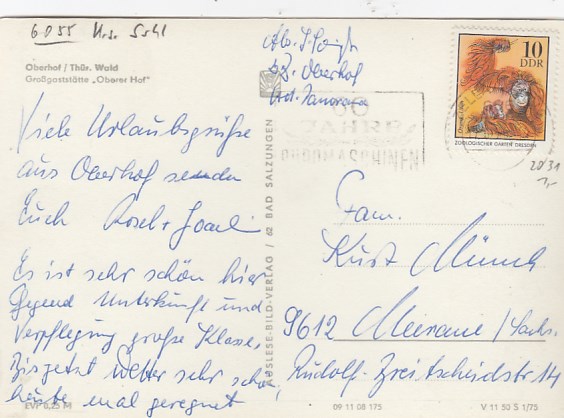 6055 Krs. Suhl
Oberhof / Thür. Wald
Großgaststätte „Oberer Hof"
Viele Urlaubsgrüße
aus Oberhof senden
Euch Rosel +
Es ist sehr schön hier
Gegend Unterkunft und
Verpflegung große Klasse,
Bis jetzt Wetter sehr schön,
heute mal geregnet
EVP 0,25 M
AUSLESE-BILD-VERLAG / 62 BAD SALZUNGEN
Abs.
Oberhof
Panorama
JAHRE
BÜROMASCHINEN
10
DDR
ZOOLOGISCHER GARTEN DRESDEN
20/31
1,-
Fam.
Kurt Münch
9612 Meerane / Sachs.
Rudolf-Breitscheidstr 14
09 11 08 175
V 11 50 S 1/75